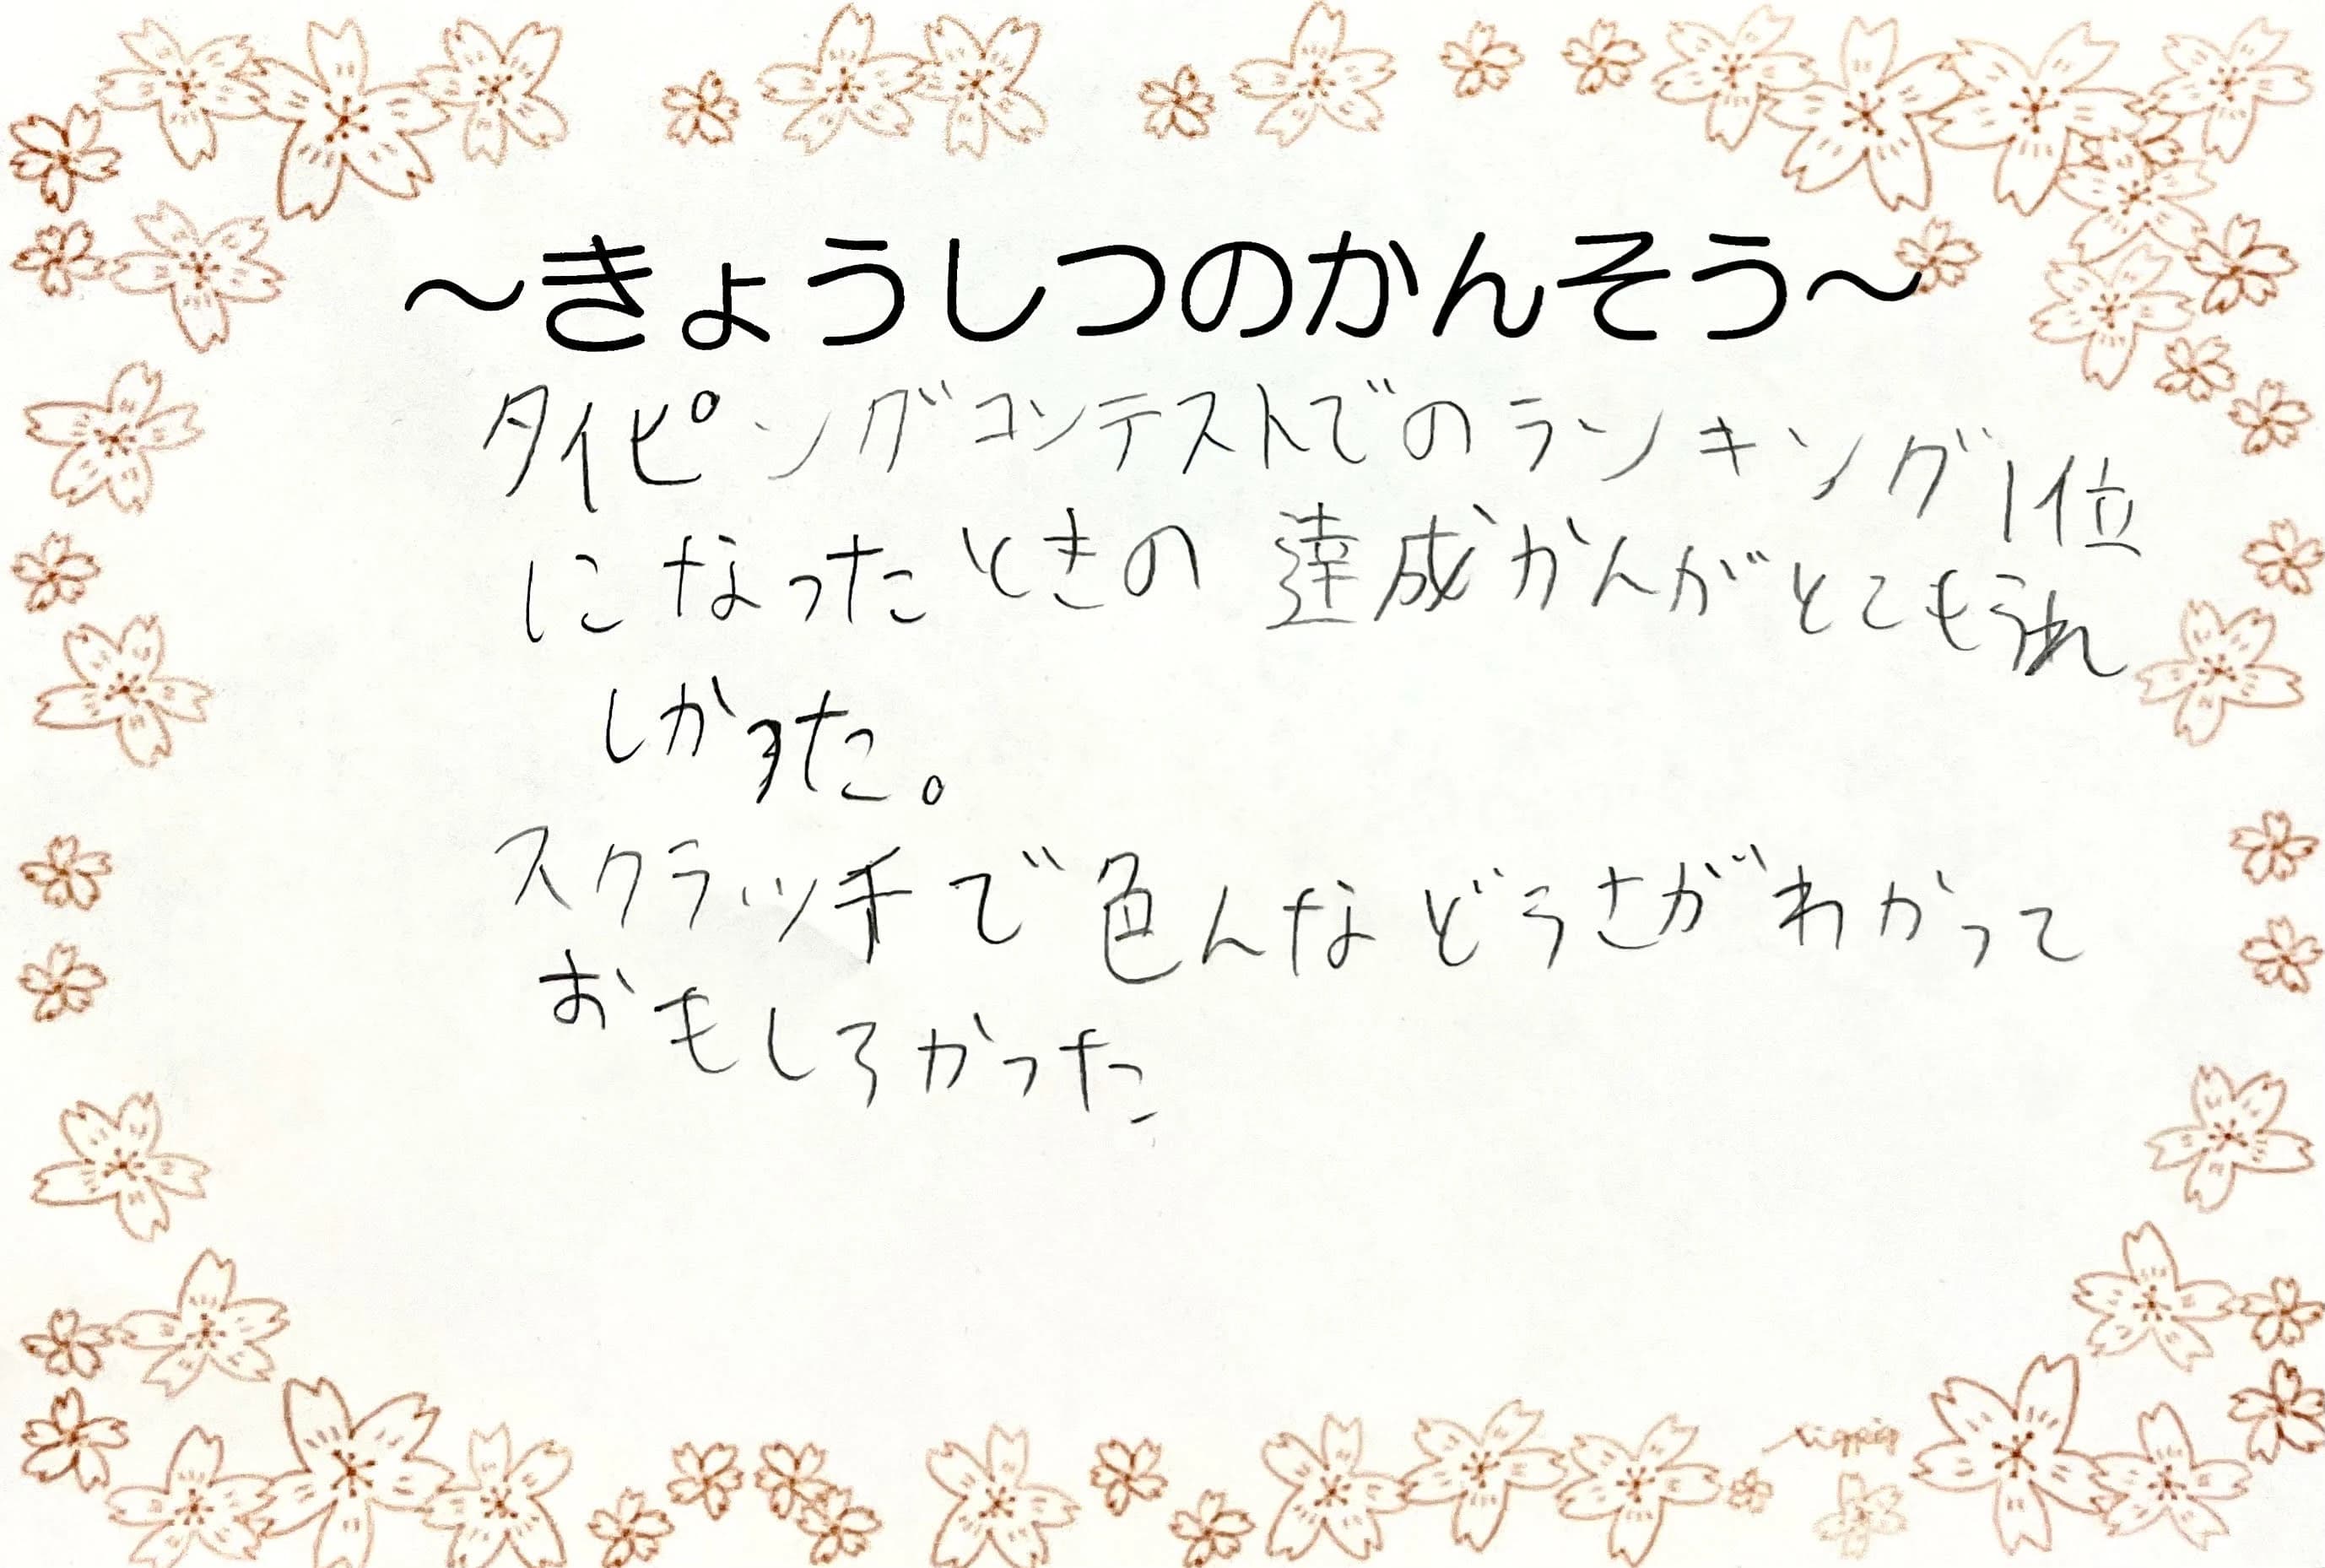 ～きょうしつのかんそう～
タイピングコンテストでのランキング1位
になったときの達成かんがとてもうれ
しかった。
スクラッチで色んなどうさがわかって
おもしろかった